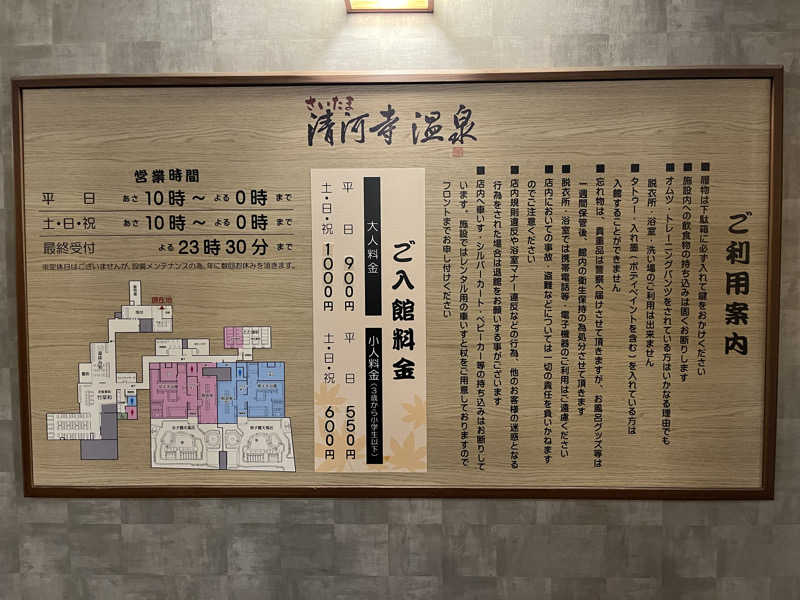 さいたま
清河寺温泉
ご利用案内
■履物は下駄箱に必ず入れて鍵をおかけください
■施設内への飲食物の持ち込みは固くお断りします
■オムツ・トレーニングパンツをされている方はいかなる理由でも
脱衣所・浴室・洗い場のご利用は出来ません
■タトゥー・入れ墨(ボディペイントを含む)を入れている方は
入館することができません
■忘れ物は、貴重品は警察へ届けさせて頂きますが、お風呂グッズ等は
一週間保管後、館内の衛生保持の為処分させて頂きます
■脱衣所・浴室では携帯電話等・電子機器のご利用はご遠慮ください
■店内においての事故・盗難などについては一切の責任を負いかねます
のでご注意ください
■店内規則違反や浴室マナー違反などの行為、他のお客様の迷惑となる
行為をされた場合は退館をお願いする事がございます
■店内へ車いす・シルバーカート・ベビーカー等の持ち込みはお断りして
います。施設ではレンタル用の車いすと杖をご用意しておりますので
フロントまでお申し付けください
ご入館料金
大人料金
平日 900円
土・日・祝 1000円
小人料金(3歳から小学生以下)
平日 550円
土・日・祝 600円
営業時間
平日 あさ10時～よる0時まで
土・日・祝 あさ10時～よる0時まで
最終受付 よる23時30分まで
※定休日はございませんが、設備メンテナンスの為、年に数回お休みを頂きます。
現在地